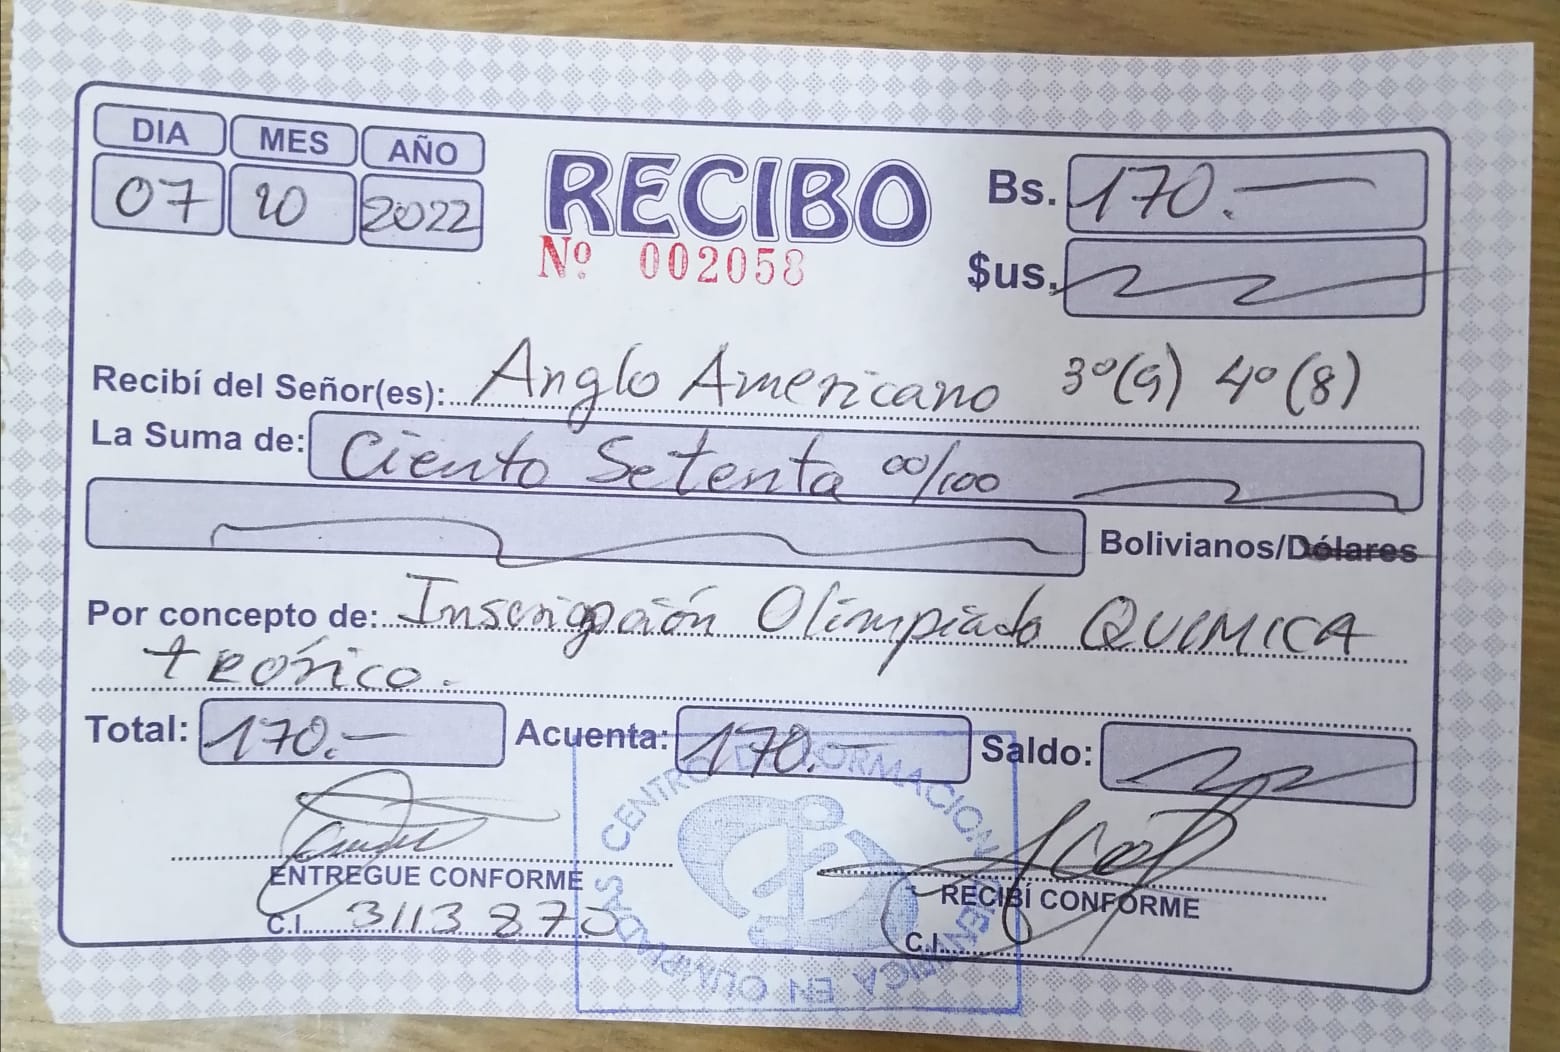 DIA MES AÑO
07 10 2022
RECIBO
Nº 002058
Bs. 170.—
$us.
Recibí del Señor(es): Anglo Americano 3º(9) 4º(8)
La Suma de: Ciento Setenta 00/100
Bolivianos/Dólares
Por concepto de: Inscripción Olimpiada QUIMICA
teórico.
Total: 170.— Acuenta: 170.— Saldo:
ENTREGUE CONFORME
C.I. 3113870
RECIBÍ CONFORME
C.I.
CENTRO DE FORMACION CIENTIFICA EN OLIMPIADAS